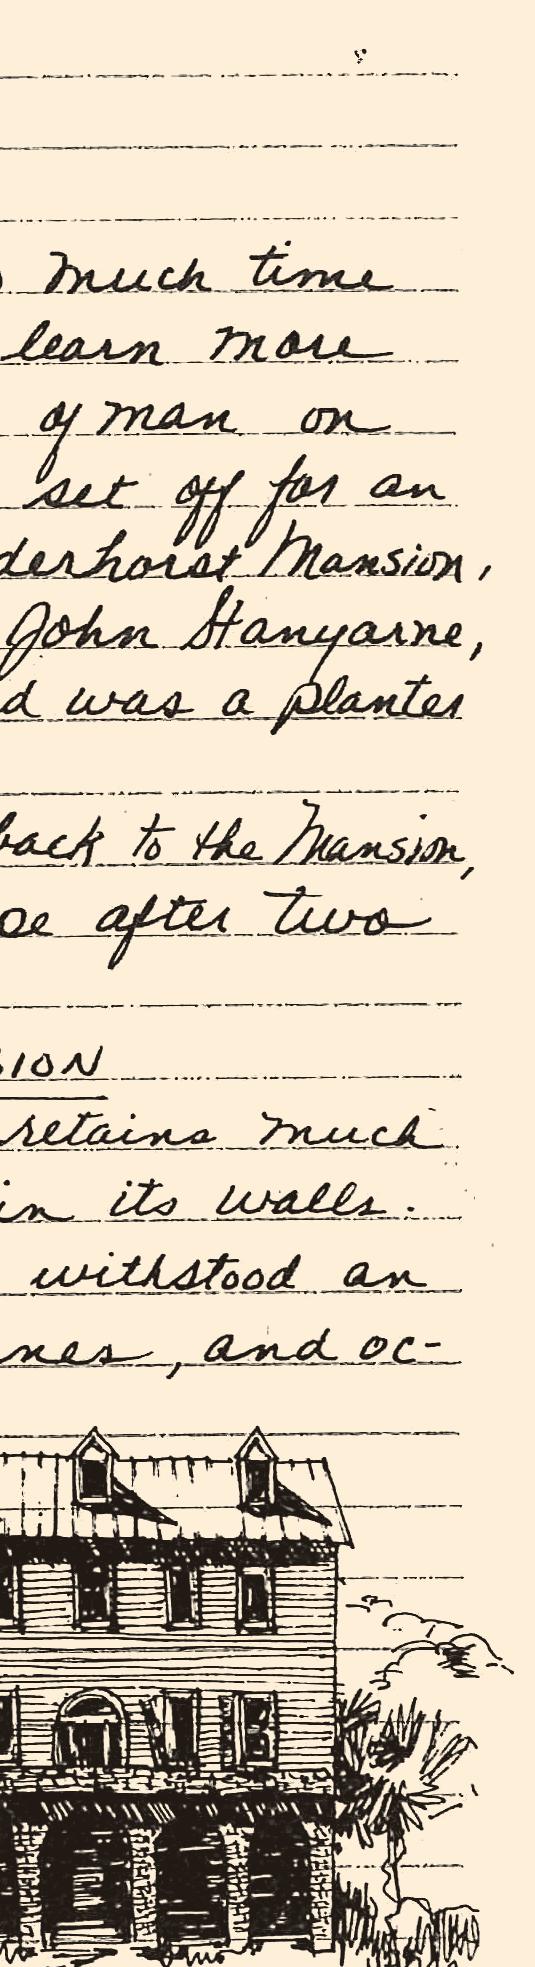 much time
learn more
of man on
set off for an
derhorst Mansion,
John Stanyarne,
d was a planter
back to the Mansion,
se after two
SION
retains much
in its walls.
withstood an
nes, and oc-